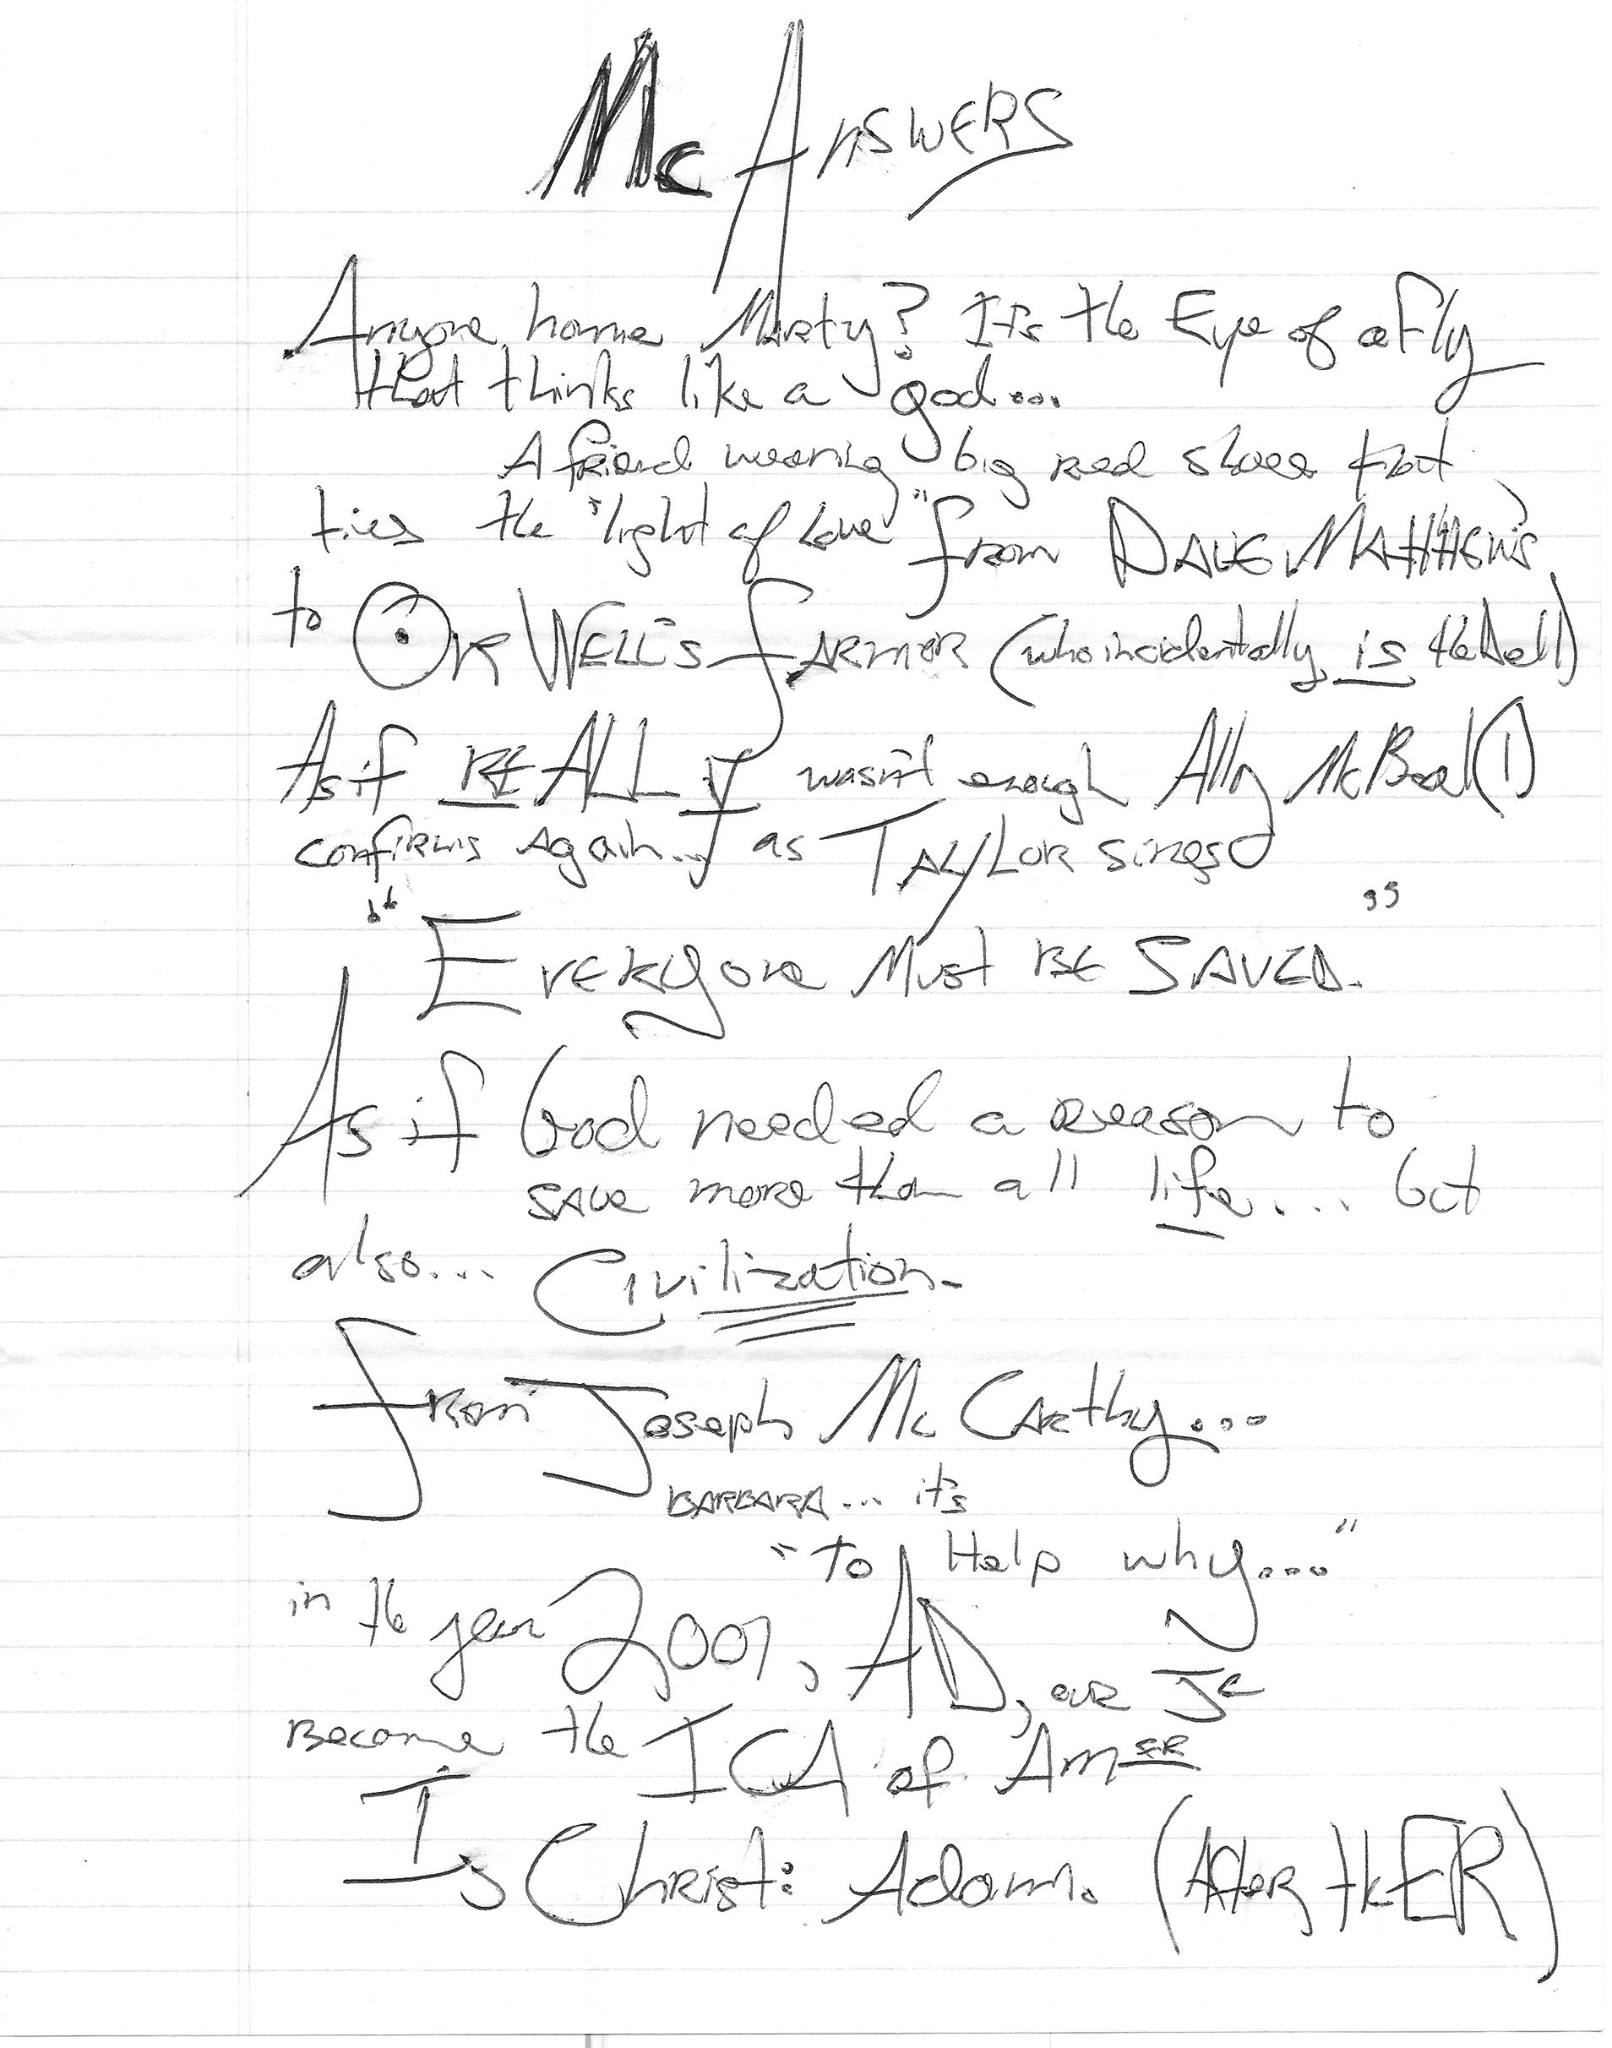 Mc Answers
Anyone home Marty? It's the Eye of a Fly
that thinks like a god...
A friend wearing big red shoes that
ties the "light of love" from DAVE MATTHEWS
to ORWELL'S FARMER (who incidentally is the Dell)
As if REALLY wasn't enough Ally McBeal(1)
confirms again... as TAYLOR sings
"EVERYone Must BE SAVED."
As if God needed a reason to
save more than all life... but
also... Civilization.
From Joseph McCarthy...
BARBARA... it's
"to Help why..."
in the year 2001, AD, our JC
Become the ICA of Amer
Is Christ: Adam. (After the ER)